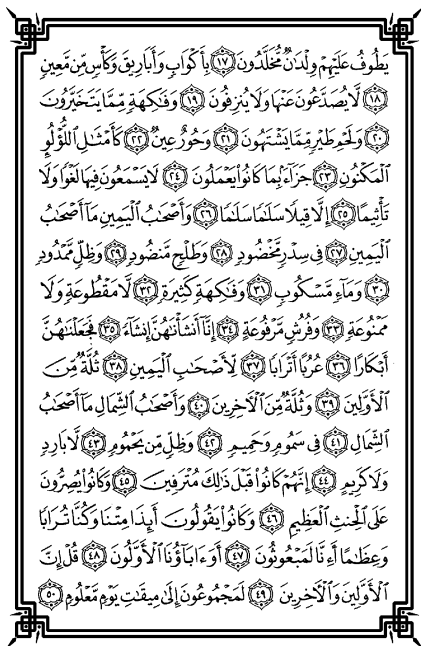 يَطُوفُ عَلَيْهِمْ وِلْدَٰنٌ مُّخَلَّدُونَ ١٧ بِأَكْوَابٍ وَأَبَارِيقَ وَكَأْسٍ مِّن مَّعِينٍ
١٨ لَّا يُصَدَّعُونَ عَنْهَا وَلَا يُنزِفُونَ ١٩ وَفَٰكِهَةٍ مِّمَّا يَتَخَيَّرُونَ
٢٠ وَلَحْمِ طَيْرٍ مِّمَّا يَشْتَهُونَ ٢١ وَحُورٌ عِينٌ ٢٢ كَأَمْثَٰلِ ٱللُّؤْلُوِٕ
ٱلْمَكْنُونِ ٢٣ جَزَآءًۢ بِمَا كَانُوا۟ يَعْمَلُونَ ٢٤ لَا يَسْمَعُونَ فِيهَا لَغْوًا وَلَا
تَأْثِيمًا ٢٥ إِلَّا قِيلًا سَلَٰمًا سَلَٰمًا ٢٦ وَأَصْحَٰبُ ٱلْيَمِينِ مَآ أَصْحَٰبُ
ٱلْيَمِينِ ٢٧ فِى سِدْرٍ مَّخْضُودٍ ٢٨ وَطَلْحٍ مَّنضُودٍ ٢٩ وَظِلٍّ مَّمْدُودٍ
٣٠ وَمَآءٍ مَّسْكُوبٍ ٣١ وَفَٰكِهَةٍ كَثِيرَةٍ ٣٢ لَّا مَقْطُوعَةٍ وَلَا
مَمْنُوعَةٍ ٣٣ وَفُرُشٍ مَّرْفُوعَةٍ ٣٤ إِنَّآ أَنشَأْنَٰهُنَّ إِنشَآءً ٣٥ فَجَعَلْنَٰهُنَّ
أَبْكَارًا ٣٦ عُرُبًا أَتْرَابًا ٣٧ لِّأَصْحَٰبِ ٱلْيَمِينِ ٣٨ ثُلَّةٌ مِّنَ
ٱلْأَوَّلِينَ ٣٩ وَثُلَّةٌ مِّنَ ٱلْءَاخِرِينَ ٤٠ وَأَصْحَٰبُ ٱلشِّمَالِ مَآ أَصْحَٰبُ
ٱلشِّمَالِ ٤١ فِى سَمُومٍ وَحَمِيمٍ ٤٢ وَظِلٍّ مِّن يَحْمُومٍ ٤٣ لَّا بَارِدٍ
وَلَا كَرِيمٍ ٤٤ إِنَّهُمْ كَانُوا۟ قَبْلَ ذَٰلِكَ مُتْرَفِينَ ٤٥ وَكَانُوا۟ يُصِرُّونَ
عَلَى ٱلْحِنثِ ٱلْعَظِيمِ ٤٦ وَكَانُوا۟ يَقُولُونَ أَئِذَا مِتْنَا وَكُنَّا تُرَابًا
وَعِظَٰمًا أَءِنَّا لَمَبْعُوثُونَ ٤٧ أَوَءَابَآؤُنَا ٱلْأَوَّلُونَ ٤٨ قُلْ إِنَّ
ٱلْأَوَّلِينَ وَٱلْءَاخِرِينَ ٤٩ لَمَجْمُوعُونَ إِلَىٰ مِيقَٰتِ يَوْمٍ مَّعْلُومٍ ٥٠